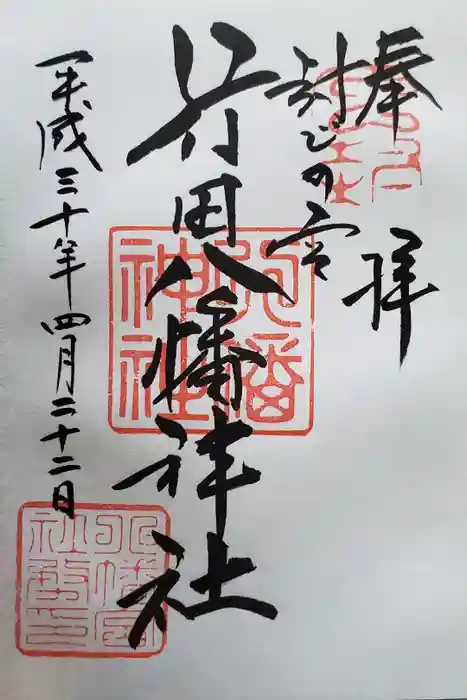 奉拝
封じの宮
行田八幡神社
平成三十年四月二十二日
八幡神社